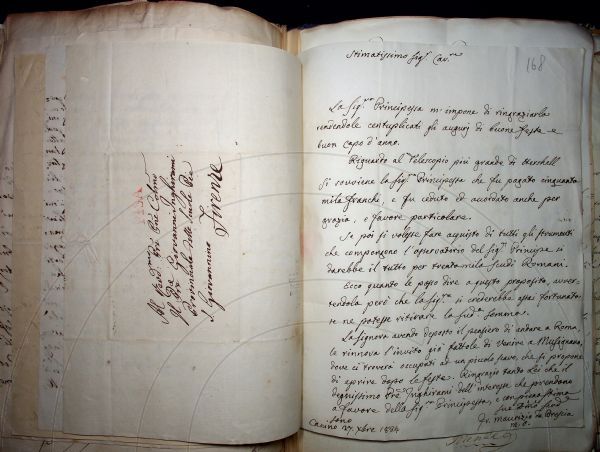 Al Rev.mo Pre Pne Colmo
Il Pre Giovanni Inghirami
Provinciale delle Scuole Pie
S. Giovannino Firenze
168
Stimatissimo Sig.r Cav.re
La Sig.ra Principessa m'impone di ringraziarla
rendendole centuplicati gli augurj di buone feste e
buon capo d'anno.
Riguardo al Telescopio più grande di Herschell
si sovviene la Sig.ra Principessa che fu pagato cinquanta
mila franchi, e fu ceduto ed accordato anche per
grazia, e favore particolare.
Se poi si volesse fare acquisto di tutti gli strumenti
che compongono l'osservatorio del sig.r Principe si
darebbe il tutto per trentamila scudi Romani.
Ecco quanto le posso dire a questo proposito, avver-
tendola però che la Sig.ra si crederebbe assai fortunata
se ne potesse ritirare la sud.a somma.
La Signora avendo deposto il pensiero di andare a Roma,
le rinnova l'invito già fattole di venire a Musignano,
dove ci troverà occupati ad un piccolo scavo, che si propone
di aprire dopo le feste. Ringrazio tanto Lei che il
degnissimo Pre Inghirami dell'interesse che prendono
a favore della Sig.ra Principessa, e con piena stima
sono
Suo Dmo Serd
Canino 27. Xbre 1884
Fr. Maurizio da Brescia
m. o.